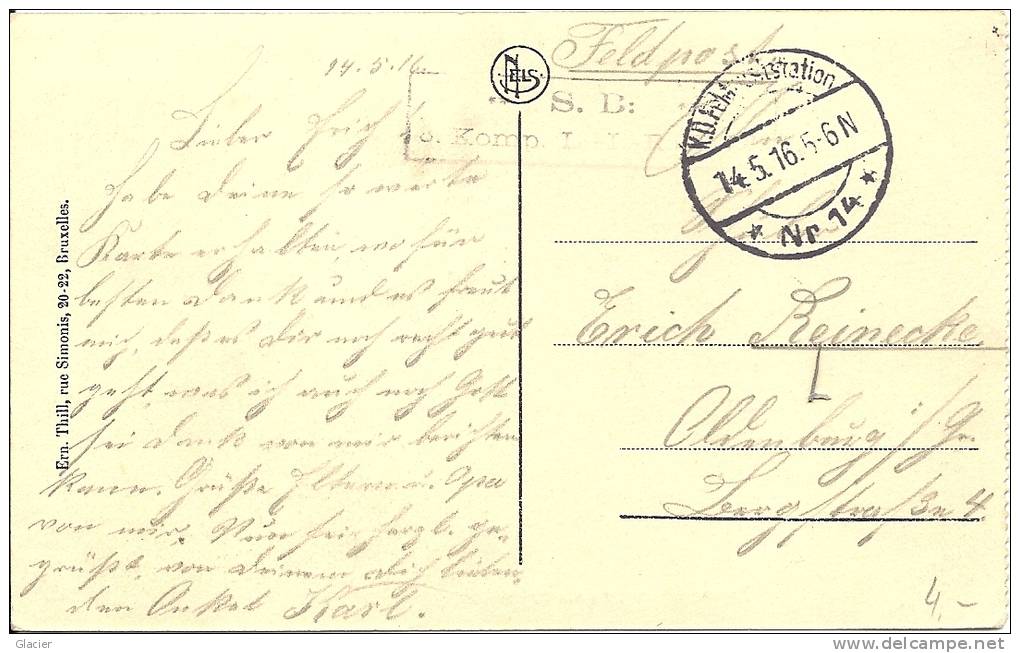 14.5.16
Lieber Erich!
Habe deine so werte
Karte erhalten, wofür
besten Dank und es freut
mich, daß es dir noch recht gut
geht, was ich auch noch Gott
sei Dank von mir berichten
kann. Grüße Eltern u. Opa
von mir. Nun sei herzl. ge-
grüßt, von deinem dich lieben-
den Onkel Karl.
Ern. Thill, rue Simonis, 20-22, Bruxelles.
NELS
Feldpost
S. B:
Komp.
K.D. Feld-Poststation
14.5.16.5-6N
* Nr 14 *
Erich Reinecke.
Oldenburg i/Gr.
Bergstraße 4
4,-
Glacier
http://www.delcampe.net